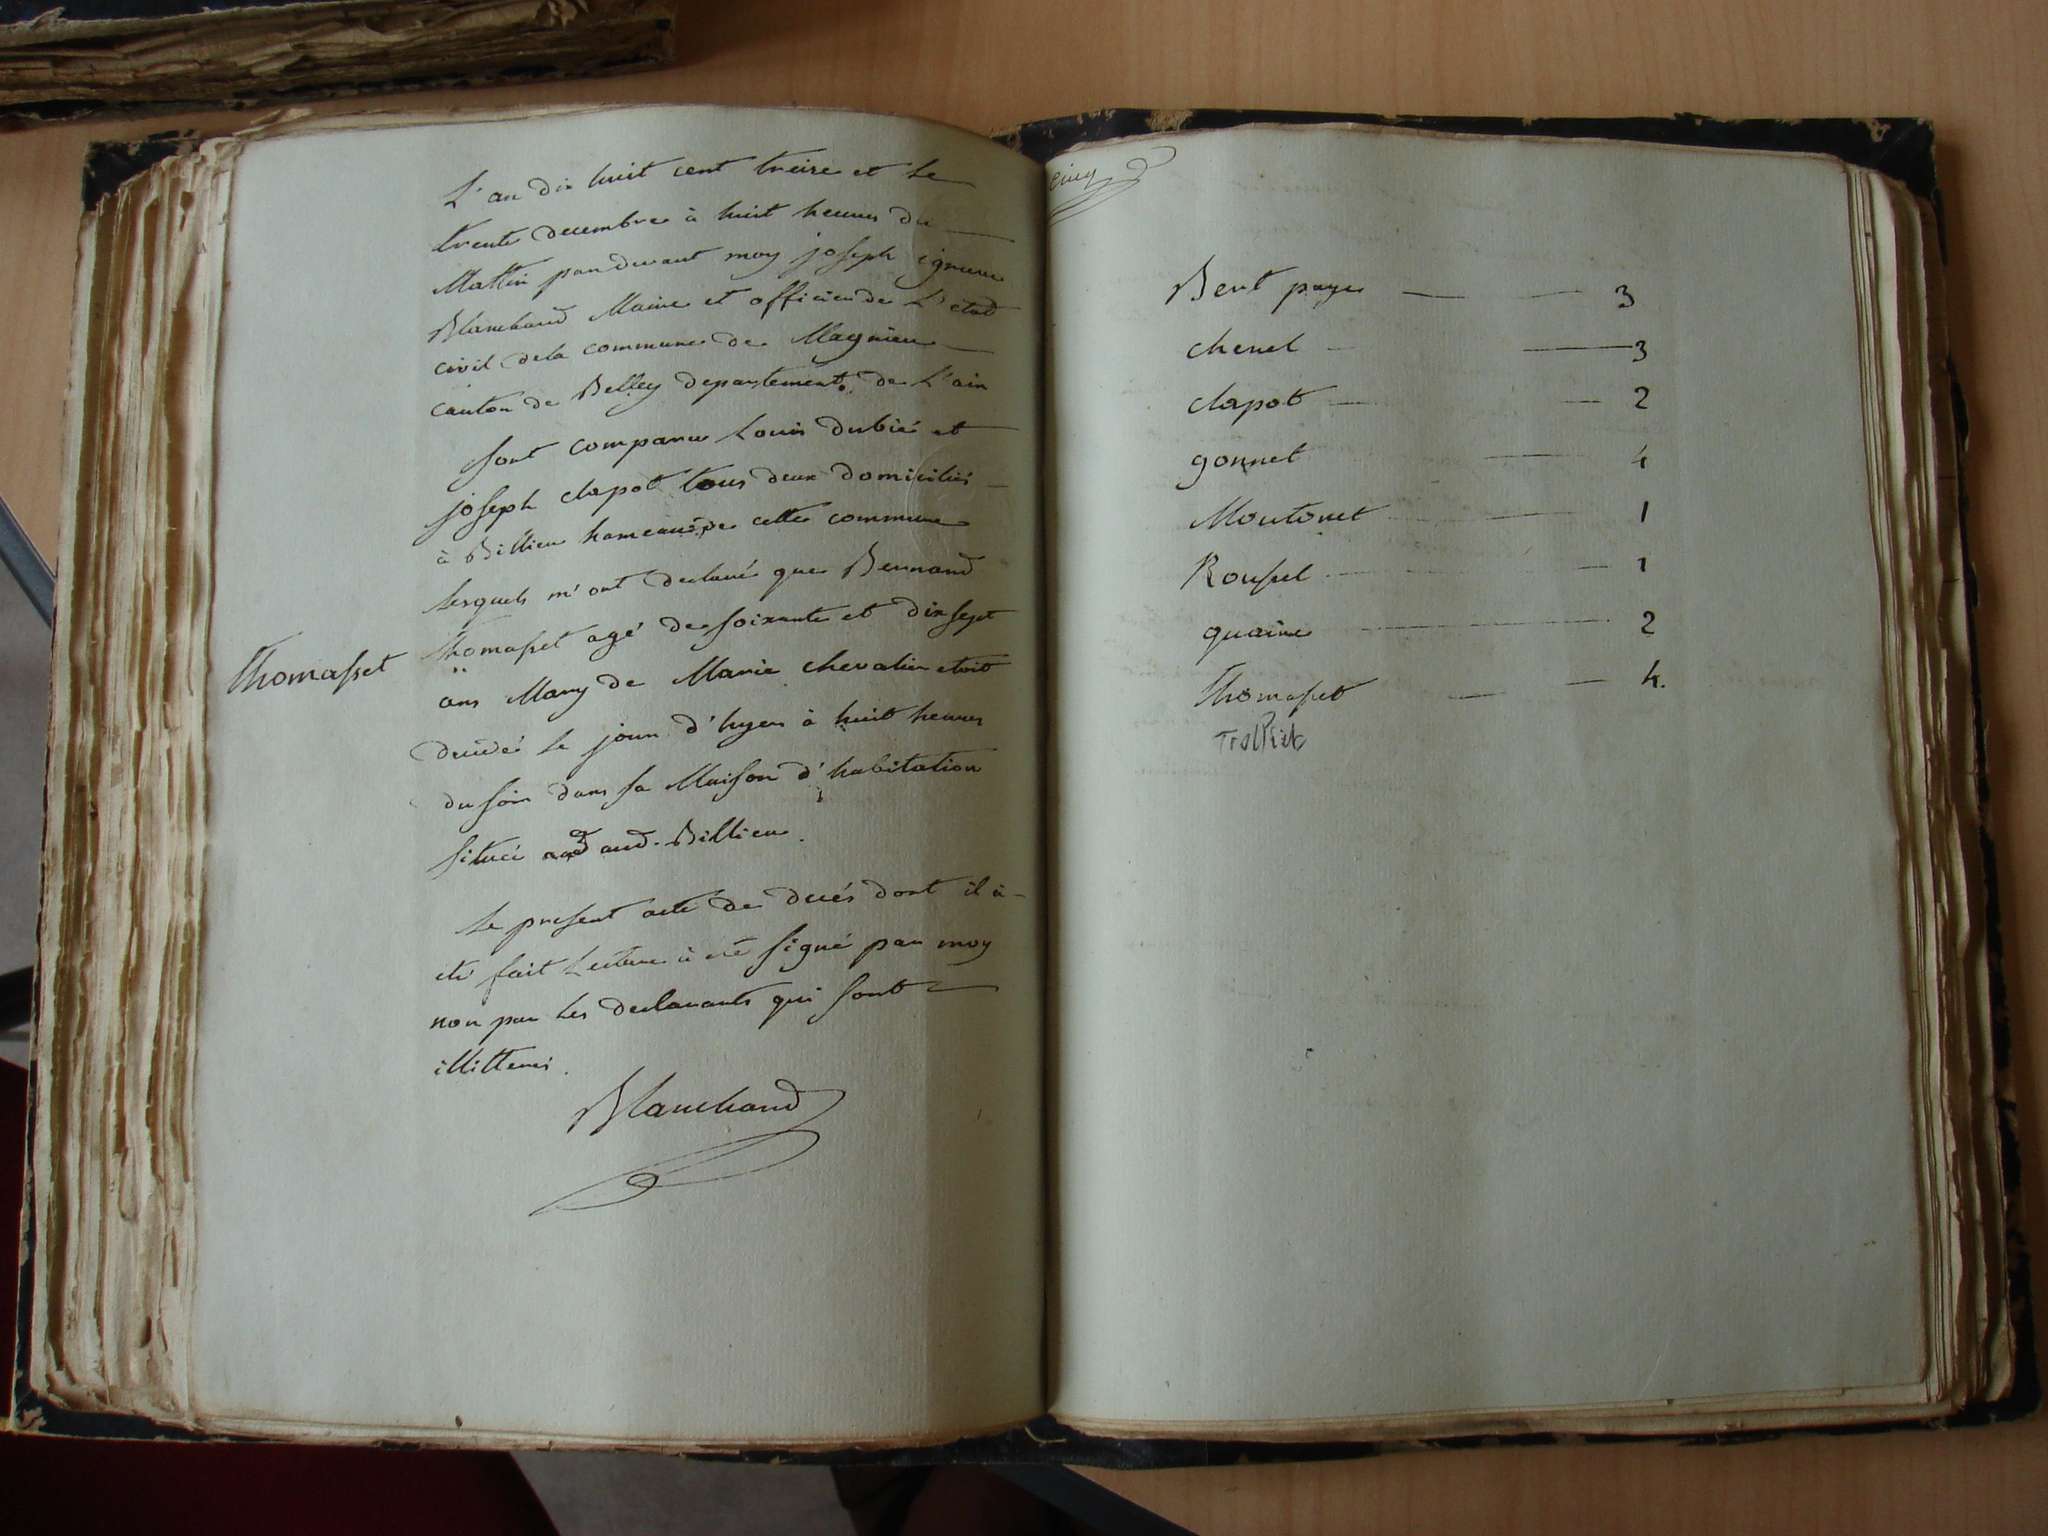 L'an dix huit cent treize et le
trente decembre à huit heures du
Mattin pardevant moy joseph ignace
Blanchard Maire et officier de L'etat
civil dela commune de Magnieu
canton de Belley departement de L'ain
sont comparu Louis dubié et
joseph clapot tous deux domiciliés
à Billieu hameau de cette commune
Lesquels m'ont declaré que Bernard
Thomasset
Thomasset agé de soixante et dix sept
ans Mary de Marie chevalier etoit
decedé le jour d'hyer à huit heures
du soir dans sa Maison d'habitation
situeé aud. Billieu.
Le present acte de decés dont il à
eté fait Lecture à eté signé par moy
non par les declarants qui sont
illitterés.
Blanchard
cinq
page 3
chenel 3
clapot 2
gonnet 4
Moutonet 1
Roussel 1
quaine 2
Thomasset 4.
Trolliet